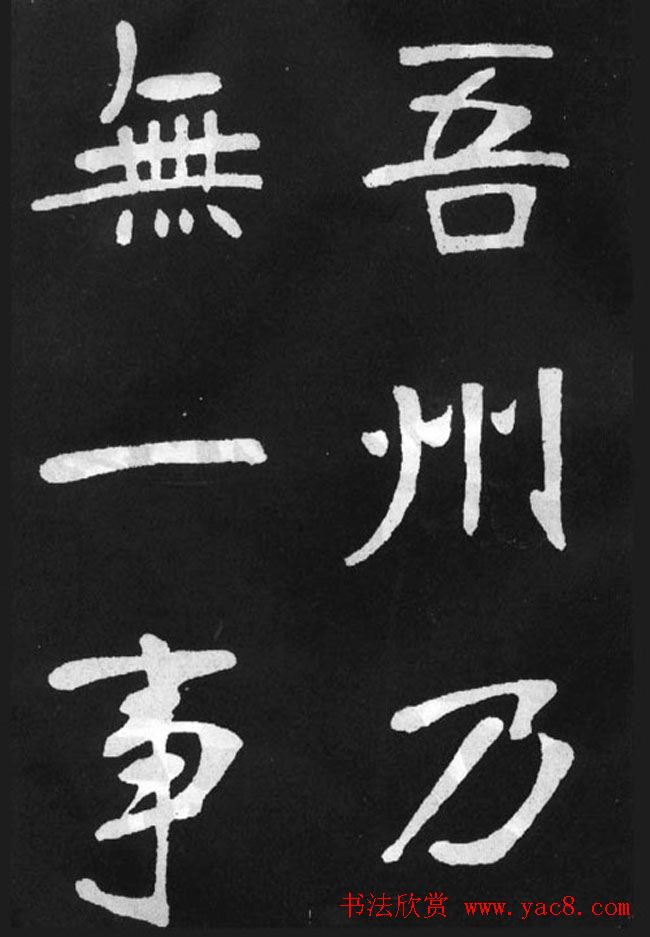 吾州乃
無一事
书法欣赏 www.yac8.com